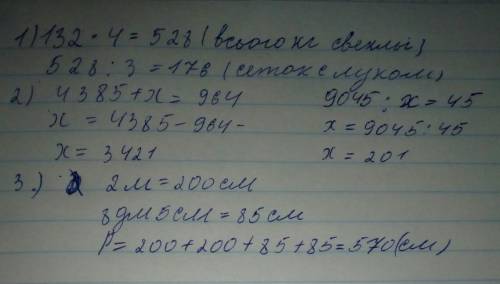 1) 132 · 4 = 528 (всього кг свеклы)
528 : 3 = 176 (сеток с луком)
2) 4385 + x = 964 9045 : x = 45
x = 4385 - 964 - x = 9045 : 45
x = 3421 x = 201
3.) 2 м = 200 см
8 дм 5 см = 85 см
P = 200 + 200 + 85 + 85 = 570 (см)